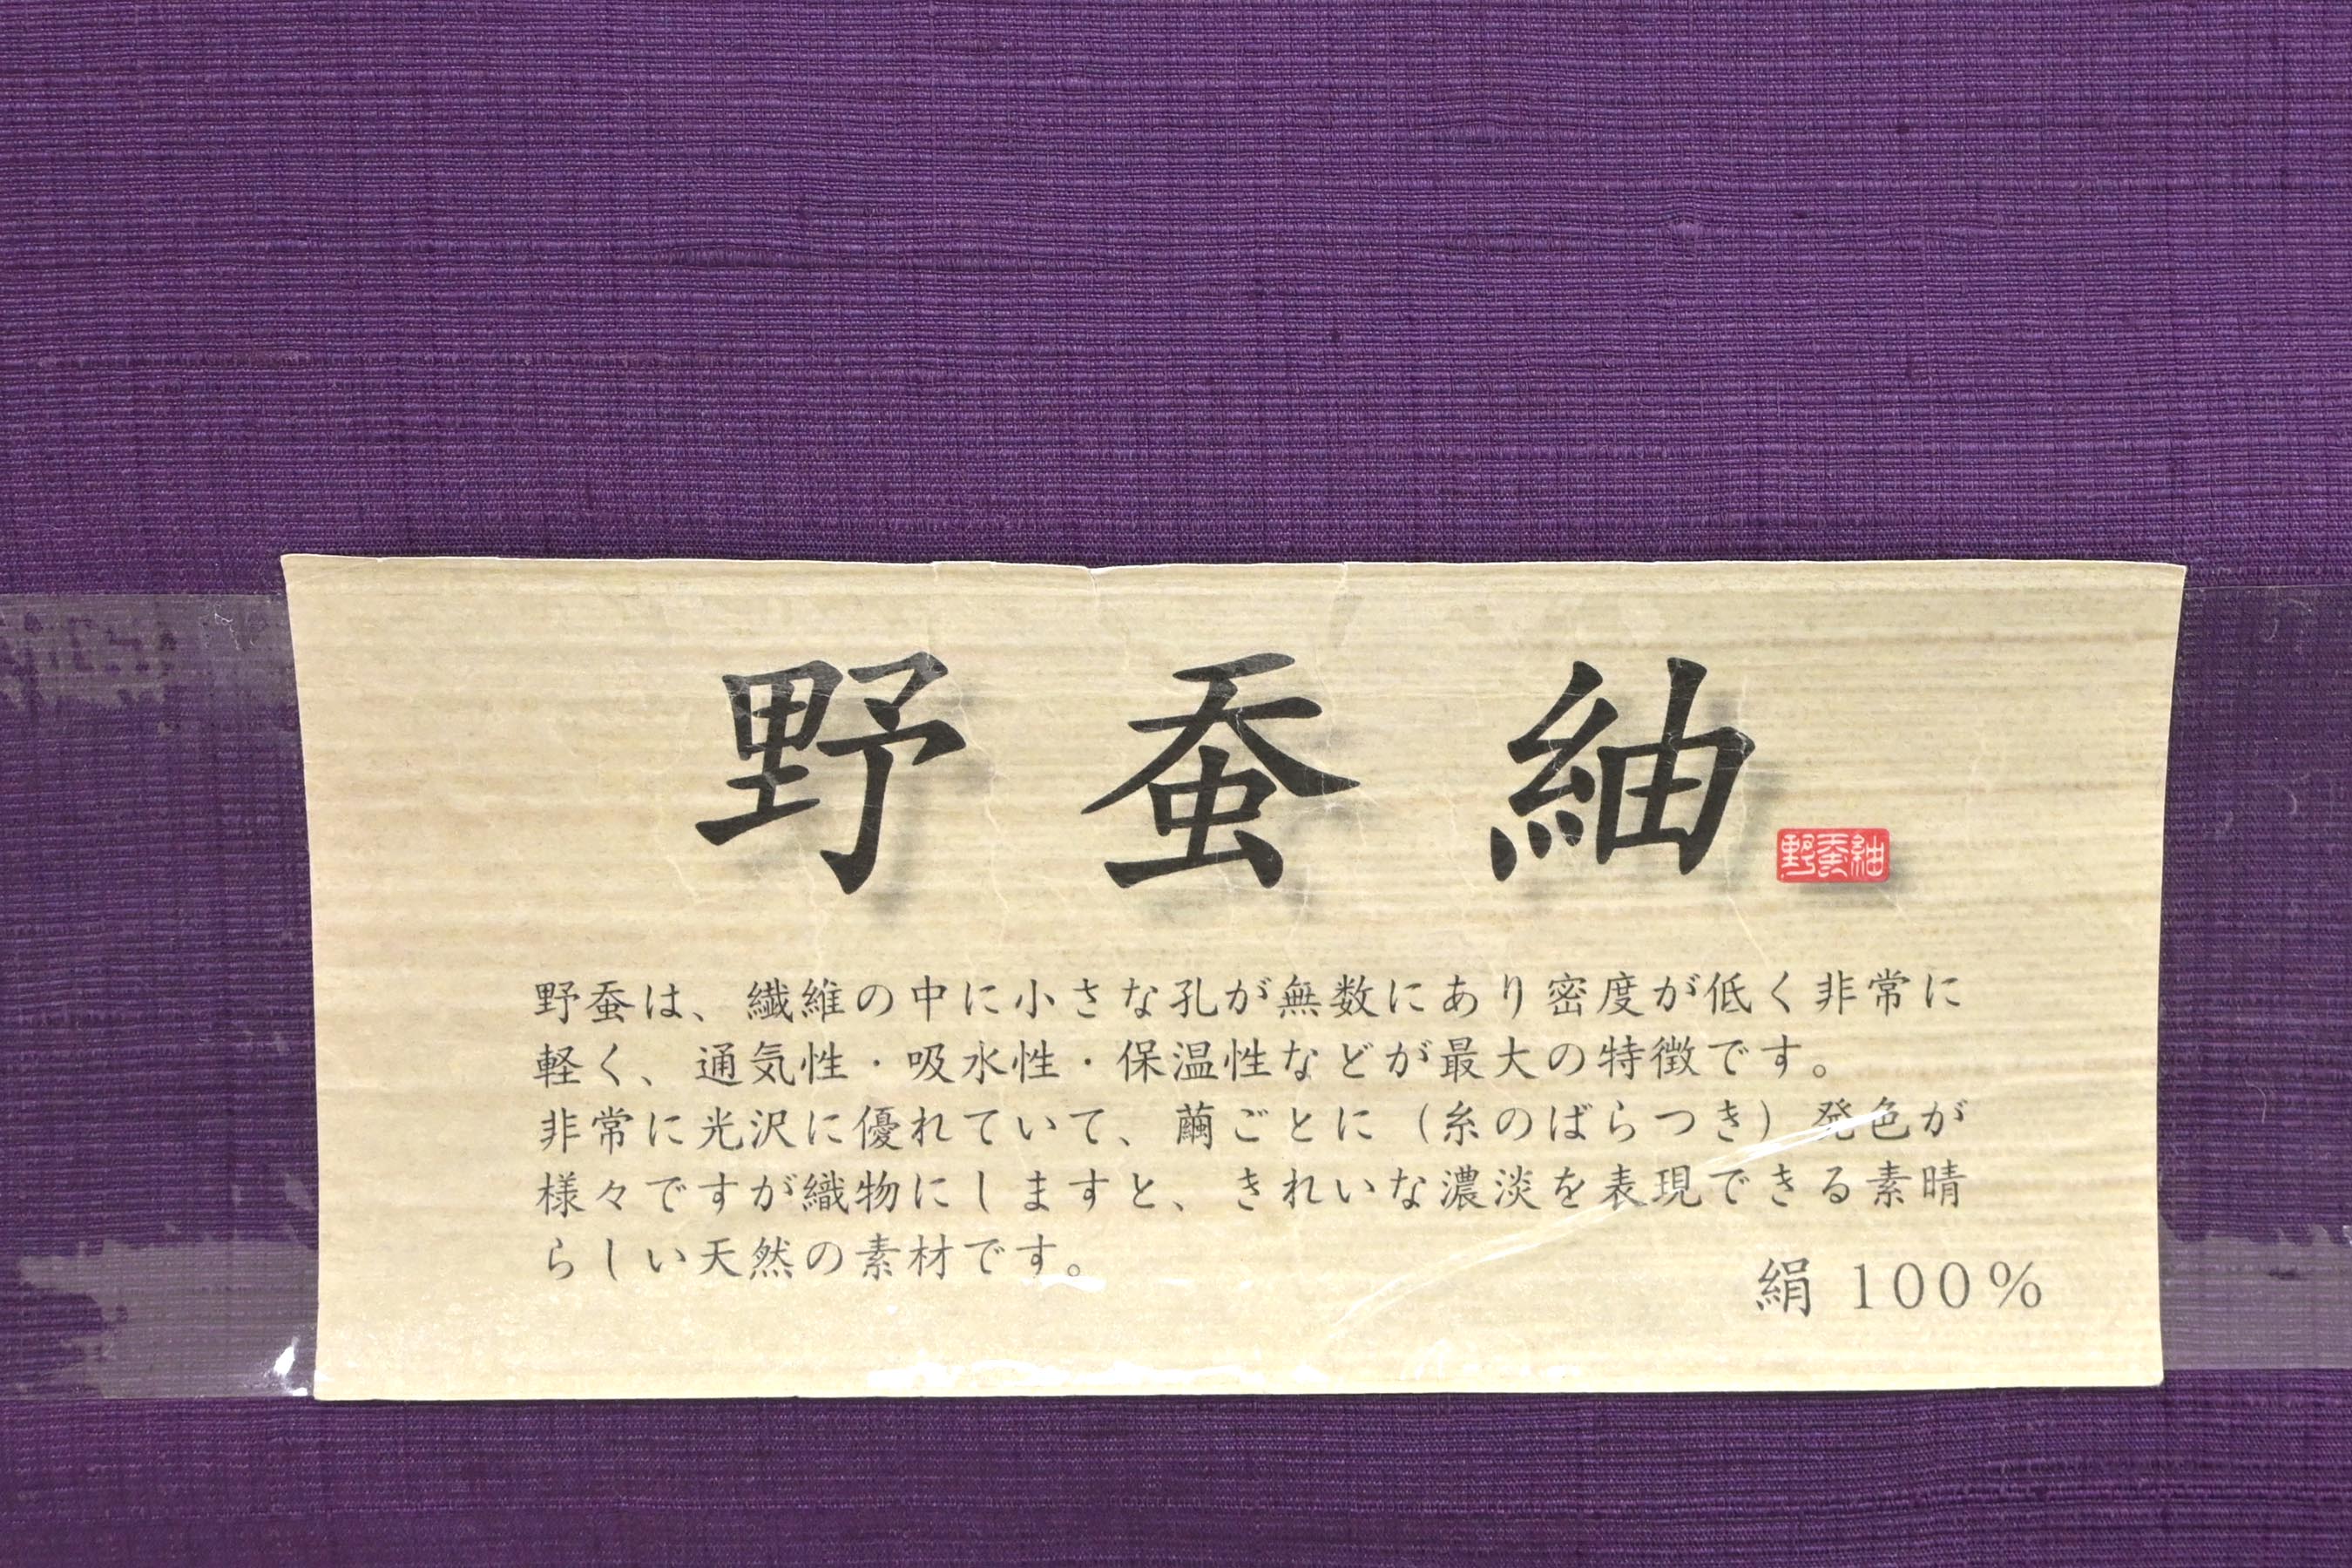 野蚕紬
野蚕紬
野蚕は、繊維の中に小さな孔が無数にあり密度が低く非常に
軽く、通気性・吸水性・保温性などが最大の特徴です。
非常に光沢に優れていて、繭ごとに（糸のばらつき）発色が
様々ですが織物にしますと、きれいな濃淡を表現できる素晴
らしい天然の素材です。
絹 100%